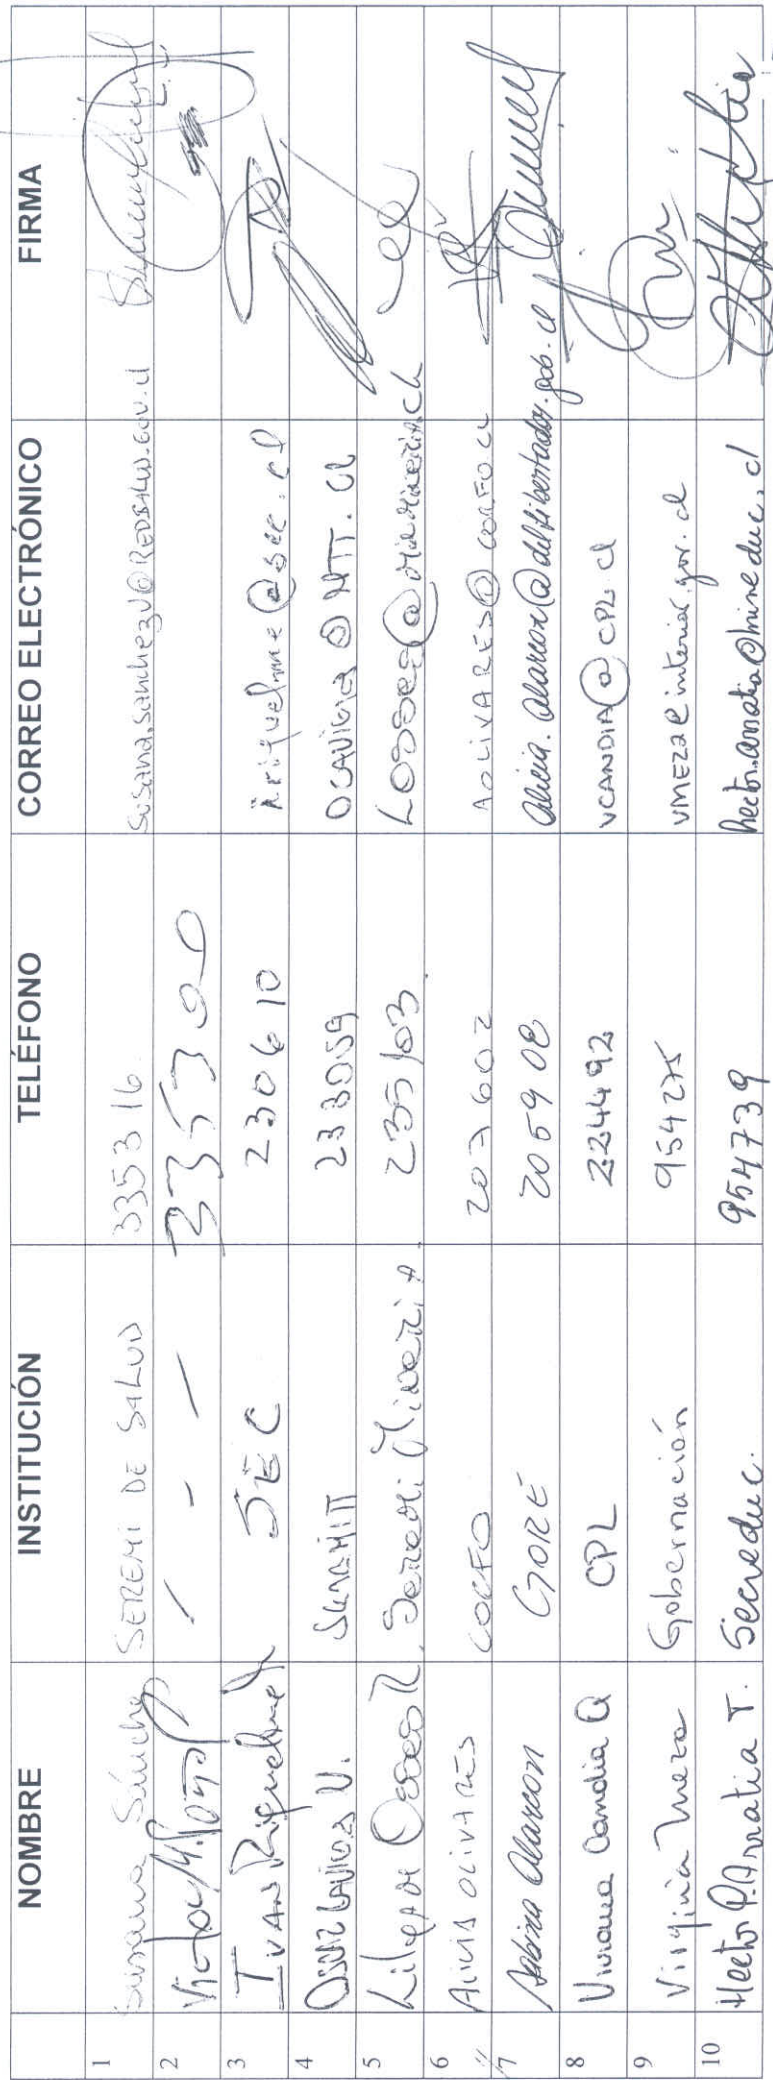 NOMBRE INSTITUCIÓN TELÉFONO CORREO ELECTRÓNICO FIRMA
1 Susana Sánchez SEREMI DE SALUD 335316 susana.sanchezv@REDSALUD.GOV.cl
2 Victor / - / 335300
3 IVAN Riquelme SEC 230610 riquelme@sec.cl
4 V. 233059 @MTT.CL
5 Osses R. Seremi Minería 235103 Losses@minmineria.cl
6 OLIVARES CORFO 203602 AOLIVARES@CORFO.CL
7 Alarcon GORE 205908 alicia.alarcon@dellibertador.gob.cl
8 Viviana Candia Q CPL 224492 VCANDIA@CPL.cl
9 Virginia Meza Gobernación 954275 VMEZA@interior.gov.cl
10 Hector P. Arratia T. Secreduc. 954739 hector.arratia@mineduc.cl